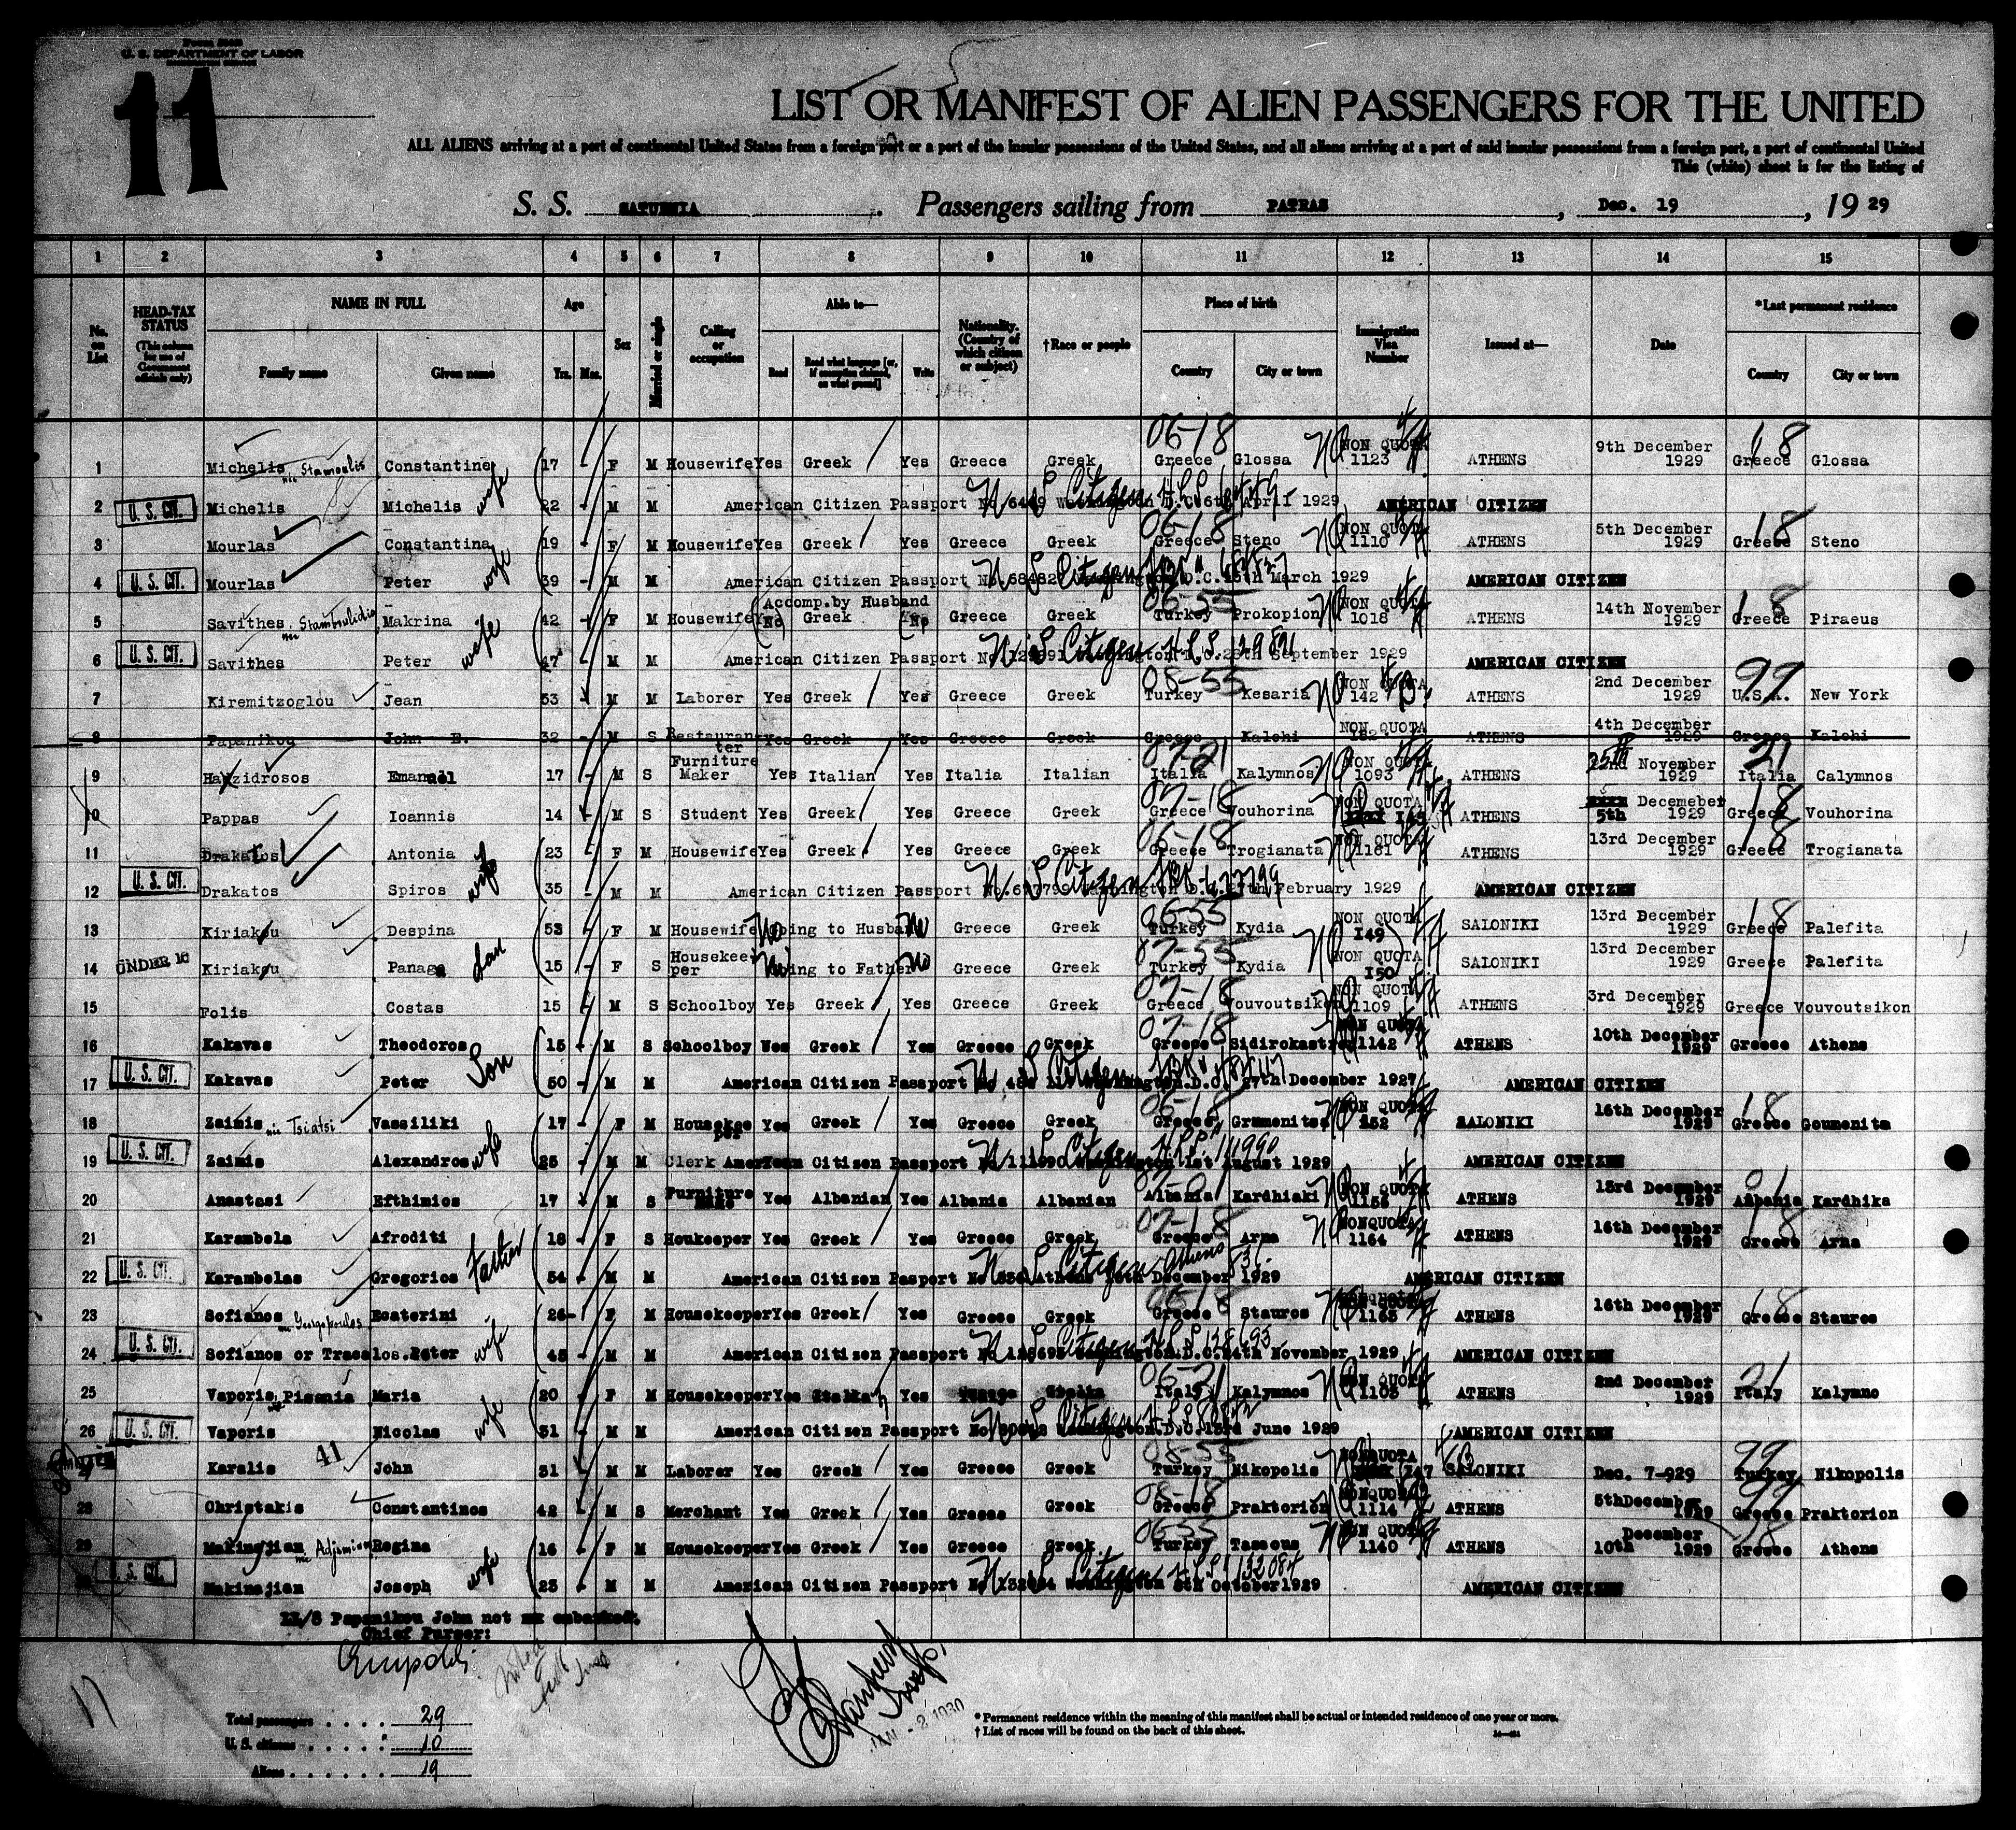 Form 500
U. S. DEPARTMENT OF LABOR
11
LIST OR MANIFEST OF ALIEN PASSENGERS FOR THE UNITED
ALL ALIENS arriving at a port of continental United States from a foreign port or a port of the insular possessions of the United States, and all aliens arriving at a port of said insular possessions from a foreign port, a port of continental United
This (white) sheet is for the listing of
S. S. SATURNIA Passengers sailing from PATRAS, Dec. 19, 19 29
1 2 3 4 5 6 7 8 9 10 11 12 13 14 15
No. on List
HEAD-TAX STATUS (This column for use of Government officials only)
NAME IN FULL Family name Given name
Age Yrs. Mos.
Sex
Married or single
Calling or occupation
Able to— Read Read what language [or, if exemption claimed, on what ground] Write
Nationality. (Country of which citizen or subject)
† Race or people
Place of birth Country City or town
Immigration Visa Number
Issued at—
Date
* Last permanent residence Country City or town
1 Michelis née Stamoulis Constantine wife 17 F M Housewife Yes Greek Yes Greece Greek 06-18 Greece Glossa NON QUOTA 1123 ATHENS 9th December 1929 18 Greece Glossa
2 U. S. CIT. Michelis Michelis 22 M M American Citizen Passport No 6449 Washington D.C. 6th April 1929 AMERICAN CITIZEN
3 Mourlas Constantina wife 19 F M Housewife Yes Greek Yes Greece Greek 06-18 Greece Steno NON QUOTA 1110 ATHENS 5th December 1929 18 Greece Steno
4 U. S. CIT. Mourlas Peter 39 M M American Citizen Passport No. Washington D.C. March 1929 AMERICAN CITIZEN
5 Savithes née Stamboulidis Makrina wife 42 F M Housewife Accomp.by Husband No Greek No Greece Greek 06-55 Turkey Prokopion NON QUOTA 1018 ATHENS 14th November 1929 18 Greece Piraeus
6 U. S. CIT. Savithes Peter 47 M M American Citizen Passport No 129891 Washington D.C. September 1929 AMERICAN CITIZEN
7 Kiremitzoglou Jean 53 M M Laborer Yes Greek Yes Greece Greek 08-55 Turkey Kesaria NON QUOTA 142 ATHENS 2nd December 1929 99 U.S.A. New York
8 Papanikou John E. 32 M S Restauranter Yes Greek Yes Greece Greek Greece Kalehi NON QUOTA ATHENS 4th December 1929 Greece Kalehi
9 Hatzidrosos Emanuel 17 M S Furniture Maker Yes Italian Yes Italia Italian 07-21 Italia Kalymnos NON QUOTA 1093 ATHENS 25th November 1929 21 Italia Calymnos
10 Pappas Ioannis 14 M S Student Yes Greek Yes Greece Greek 07-18 Greece Vouhorina NON QUOTA ATHENS 5th Decemeber 1929 18 Greece Vouhorina
11 Drakatos Antonia wife 23 F M Housewife Yes Greek Yes Greece Greek 06-18 Greece Trogianata NON QUOTA 1161 ATHENS 13th December 1929 18 Greece Trogianata
12 U. S. CIT. Drakatos Spiros 35 M M American Citizen Passport No. 677799 Washington D.C. 27th February 1929 AMERICAN CITIZEN
13 Kiriakou Despina 53 F M Housewife No Going to Husband No Greece Greek 06-55 Turkey Kydia NON QUOTA I49 SALONIKI 13th December 1929 18 Greece Palefita
14 UNDER 16 Kiriakou Panaga 15 F S Housekeeper No Going to Father No Greece Greek 07-55 Turkey Kydia NON QUOTA I50 SALONIKI 13th December 1929 Greece Palefita
15 Folis Costas 15 M S Schoolboy Yes Greek Yes Greece Greek 07-18 Greece Vouvoutsikon NON QUOTA 1109 ATHENS 3rd December 1929 Greece Vouvoutsikon
16 Kakavas Theodoros Son 15 M S Schoolboy Yes Greek Yes Greece Greek 07-18 Greece Sidirokastron NON QUOTA 1142 ATHENS 10th December 1929 Greece Athens
17 U. S. CIT. Kakavas Peter 50 M M American Citizen Passport No Washington.D.C. 27th December 1927 AMERICAN CITIZEN
18 Zaimis née Tsiatsi Vassiliki wife 17 F M Housekeeper Yes Greek Yes Greece Greek 06-18 Greece Grumenitsa NON QUOTA 252 SALONIKI 16th December 1929 18 Greece Goumenita
19 U. S. CIT. Zaimis Alexandros 25 M M Clerk American Citizen Passport No 111990 Washington 1st August 1929 AMERICAN CITIZEN
20 Anastasi Efthimios 17 M S Furniture Yes Albanian Yes Albania Albanian 07-01 Albania Kardhiaki NON QUOTA 1156 ATHENS 13rd December 1929 01 Albania Kardhika
21 Karambela Afroditi Father 18 F S Houkeeper Yes Greek Yes Greece Greek 07-18 Greece Arna NONQUOTA 1164 ATHENS 16th December 1929 18 Greece Arna
22 U. S. CIT. Karambelas Gregorios 54 M M American Citizen Pasport No Athens December 1929 AMERICAN CITIZEN
23 Sofianos née Georgopoulos Ecaterini wife 26 F M Housekeeper Yes Greek Yes Greece Greek 06-18 Greece Stauros NONQUOTA 1163 ATHENS 16th December 1929 18 Greece Stauros
24 U. S. CIT. Sofianos or Tracalos.Peter 45 M M American Citizen Passport No 138693 Washington.D.C. November 1929 AMERICAN CITIZEN
25 Vaporis née Pisonia Maria wife 20 F M Housekeeper Yes Yes 06-21 Italy Kalymnos NON QUOTA 1103 ATHENS 2nd December 1929 21 Italy Kalymno
26 U. S. CIT. Vaporis Nicolas 31 M M American Citizen Passport No Washington.D.C. 13rd June 1929 AMERICAN CITIZEN
27 Karalis 41 John 51 M M Laborer Yes Greek Yes Greece Greek 08-55 Turkey Nikopolis NONQUOTA SALONIKI Dec. 7-929 99 Turkey Nikopolis
28 Christakis Constantinos 42 M S Merchant Yes Greek Yes Greece Greek 08-18 Greece Praktorion NONQUOTA 1114 ATHENS 5thDecember 1929 99 Greece Praktorion
29 Makinajian née Regina wife 16 F M Housekeeper Yes Greek Yes Greece Greek 06-55 Turkey NON QUOTA 1140 ATHENS 10th December 1929 18 Greece Athens
U. S. CIT. Makinajian Joseph 23 M M American Citizen Passport No 132084 Washington October1929 AMERICAN CITIZEN
Papanikou John not embarked.
Chief Purser:
JAN - 2 1930
Total passengers . . . . 29
U. S. citizens . . . . . 10
Aliens . . . . . . 19
* Permanent residence within the meaning of this manifest shall be actual or intended residence of one year or more.
† List of races will be found on the back of this sheet.